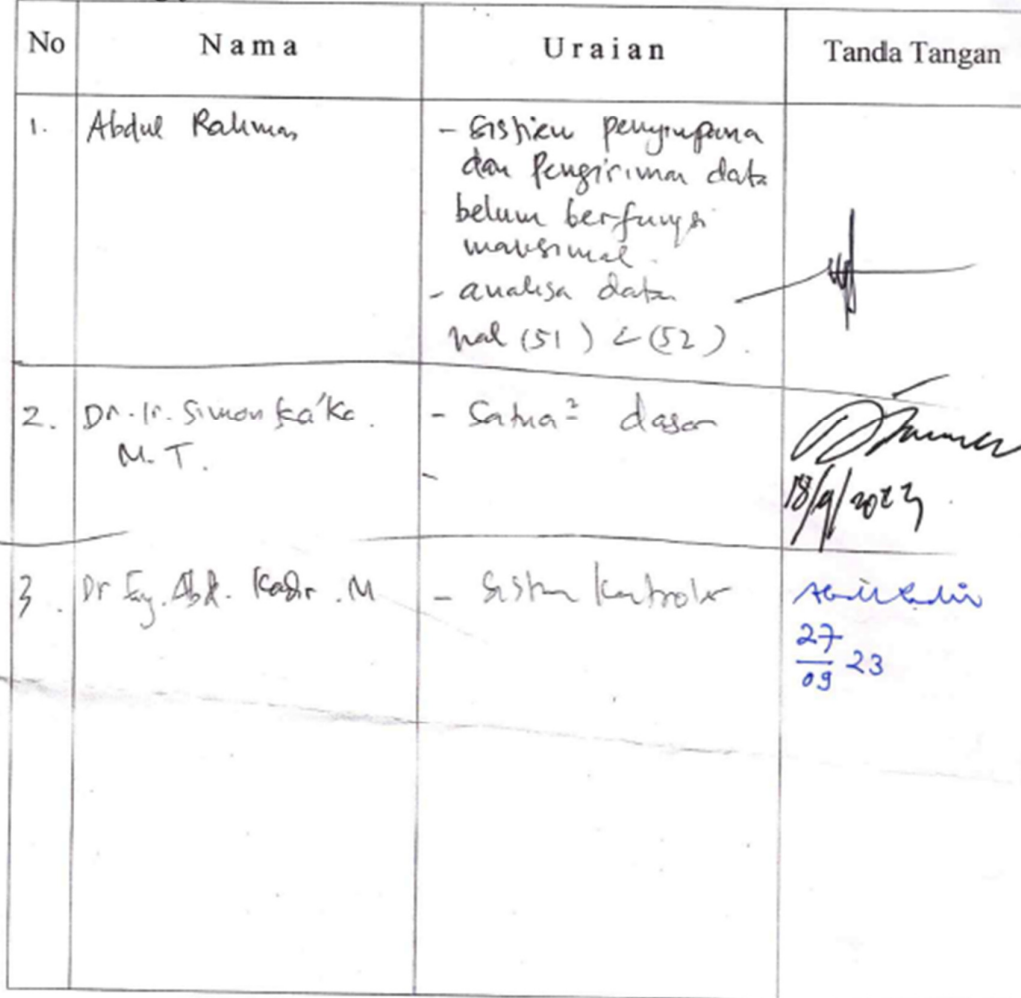 No Nama Uraian Tanda Tangan
1. Abdul Rahman
- Sistem penyimpana
dan Pengiriman data
belum berfungsi
maksimal.
- analisa data
hal (51) & (52).
2. Dr. Ir. Simon Ka'ka.
M.T.
- Satua² dasar
-
18/9/2023
3. Dr Eng. Abd. Kadir. M
- Sistem Kontroler
Abdul Kadir
27
09 23